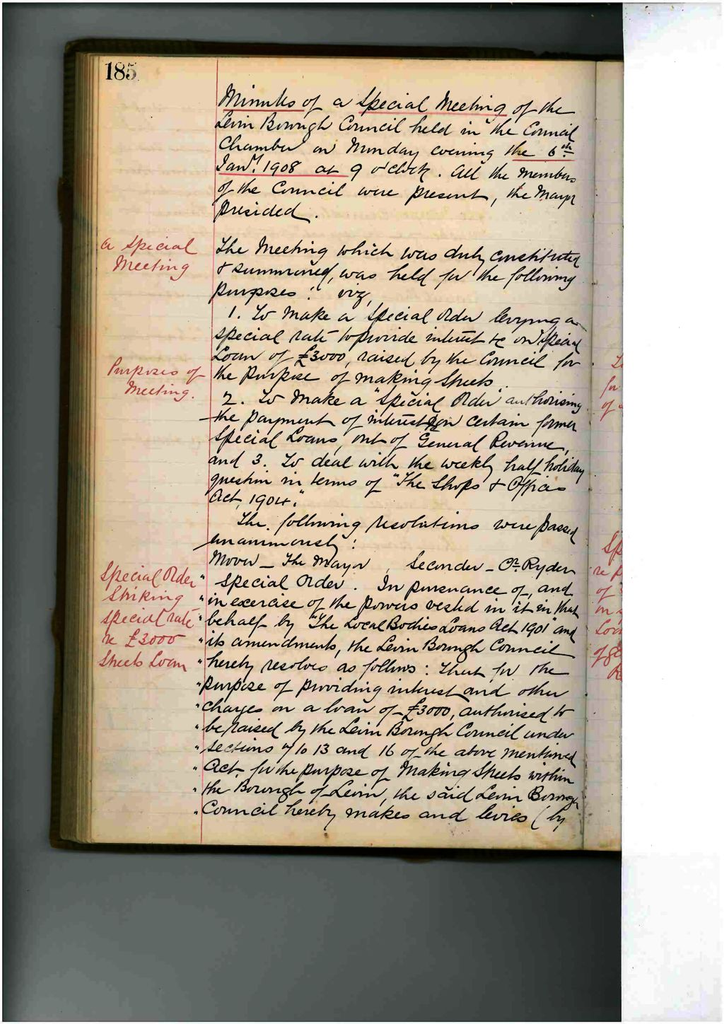 185
Minutes of a Special Meeting of the
Levin Borough Council held in the Council
Chamber on Monday evening the 6th
Jany. 1908 at 9 o'clock. All the members
of the Council were present, the Mayor
presided.
a Special
Meeting
The Meeting which was duly constituted
& summoned, was held for the following
purposes: viz,
1. To make a Special Order levying a
special rate to provide interest &c on special
Loan of £3000, raised by the Council for
the purpose of making Streets.
Purposes of
Meeting.
2. To make a "Special Order authorising
the payment of interest on certain former
Special Loans, out of General Revenue,
and 3. To deal with the weekly half holiday
question in terms of "The Shops & Offices
Act, 1904."
The following resolutions were passed
unanimously:
Mover - The Mayor, Seconder - Cr. Ryder
Special Order
Striking
special rate
re £3000
Streets Loan
" Special Order. In pursuance of, and
" in exercise of the powers vested in it in that
" behalf by "The Local Bodies Loans Act 1901" and
" its amendments, the Levin Borough Council
" hereby resolves as follows: That for the
" purpose of providing interest and other
" charges on a loan of £3000, authorised to
" be raised by the Levin Borough Council under
" Sections 7 to 13 and 16 of the above mentioned
" Act for the purpose of Making Streets within
" the Borough of Levin, the said Levin Borough
" Council hereby makes and levies (by